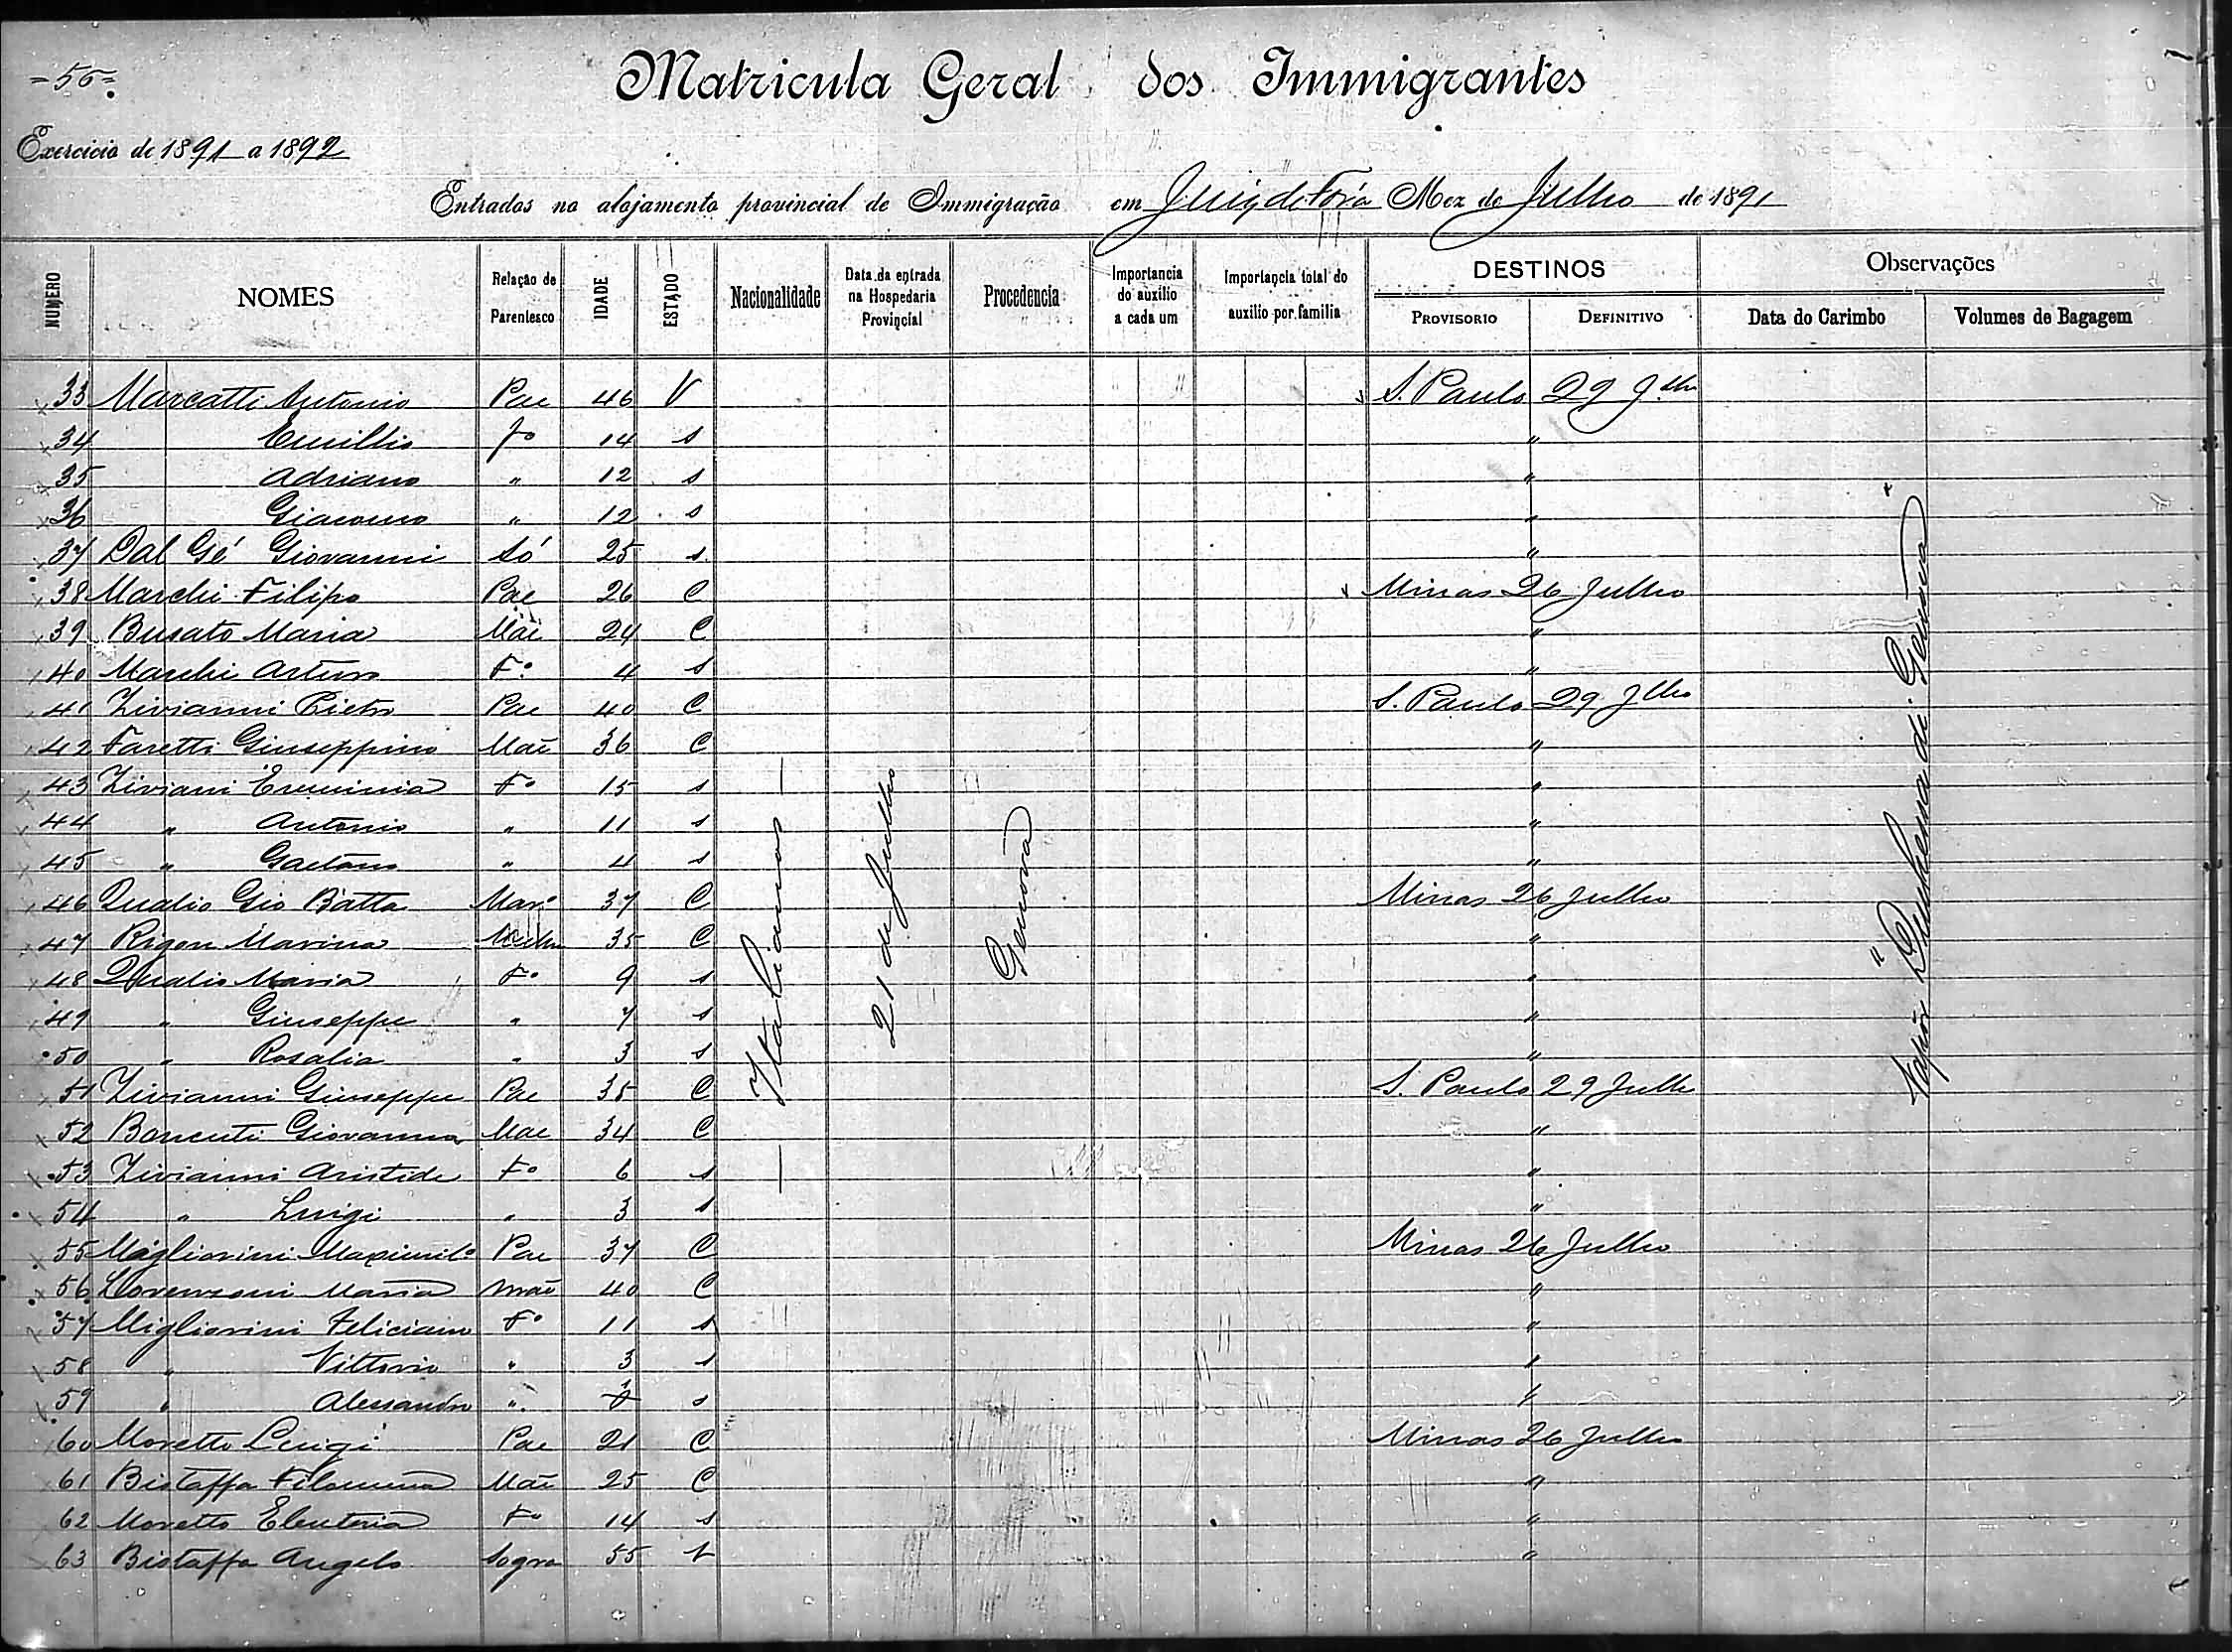 =56=
Matricula Geral dos Immigrantes
Exercicio de 1891 a 1892
Entrados no alojamento provincial de Immigração em Juiz de Fóra Mez de Julho de 1891
NUMERO NOMES Relação de Parentesco IDADE ESTADO Nacionalidade Data da entrada na Hospedaria Provincial Procedencia Importancia do auxilio a cada um Importancia total do auxilio por familia DESTINOS PROVISORIO DEFINITIVO Observações Data do Carimbo Volumes de Bagagem
33 Marcatti Antonio Pae 46 V S. Paulo 29 Jlho
34 Emillio fo 14 s "
35 Adriano " 12 s "
36 Giacomo " 12 s "
37 Dal Gé Giovanni Só 25 s "
38 Marchi Filipo Pae 26 C Minas 26 Julho
39 Busato Maria Mãe 24 C "
40 Marchi Arturo Fo 4 s "
41 Zivianni Pietro Pae 40 C S. Paulo 29 Jlho
42 Faretti Giuseppino Mãe 36 C "
43 Ziviani Erminia Fo 15 s "
44 " Antonio " 11 s "
45 " Gaetano " 4 s "
46 Qualio Gio Batta Maro 37 C Minas 26 Julho
47 Rigon Marina 35 C "
48 Qualio Maria Fo 9 s "
49 " Giuseppe " 7 s "
50 " Rosalia " 3 s "
51 Zivianni Giuseppe Pae 35 C S. Paulo 29 Julho
52 Giovanna Mae 34 C "
53 Zivianni Aristide Fo 6 s "
54 " Luigi " 3 s "
55 Migliorini Maximilo Pae 37 C Minas 26 Julho
56 Lorenzoni Maria Mãe 40 C "
57 Migliorini Feliciano Fo 11 s "
58 " Vittorio " 3 s "
59 " Alessandro " s "
60 Moretto Luigi Pae 21 C Minas 26 Julho
61 Bistaffa Filomena Mãe 25 C "
62 Moretto Eleuteria Fo 14 s "
63 Bistaffa Angelo Sogro 55 "
— Italianos —
21 de Julho
Genova
Vapor " di Genova "